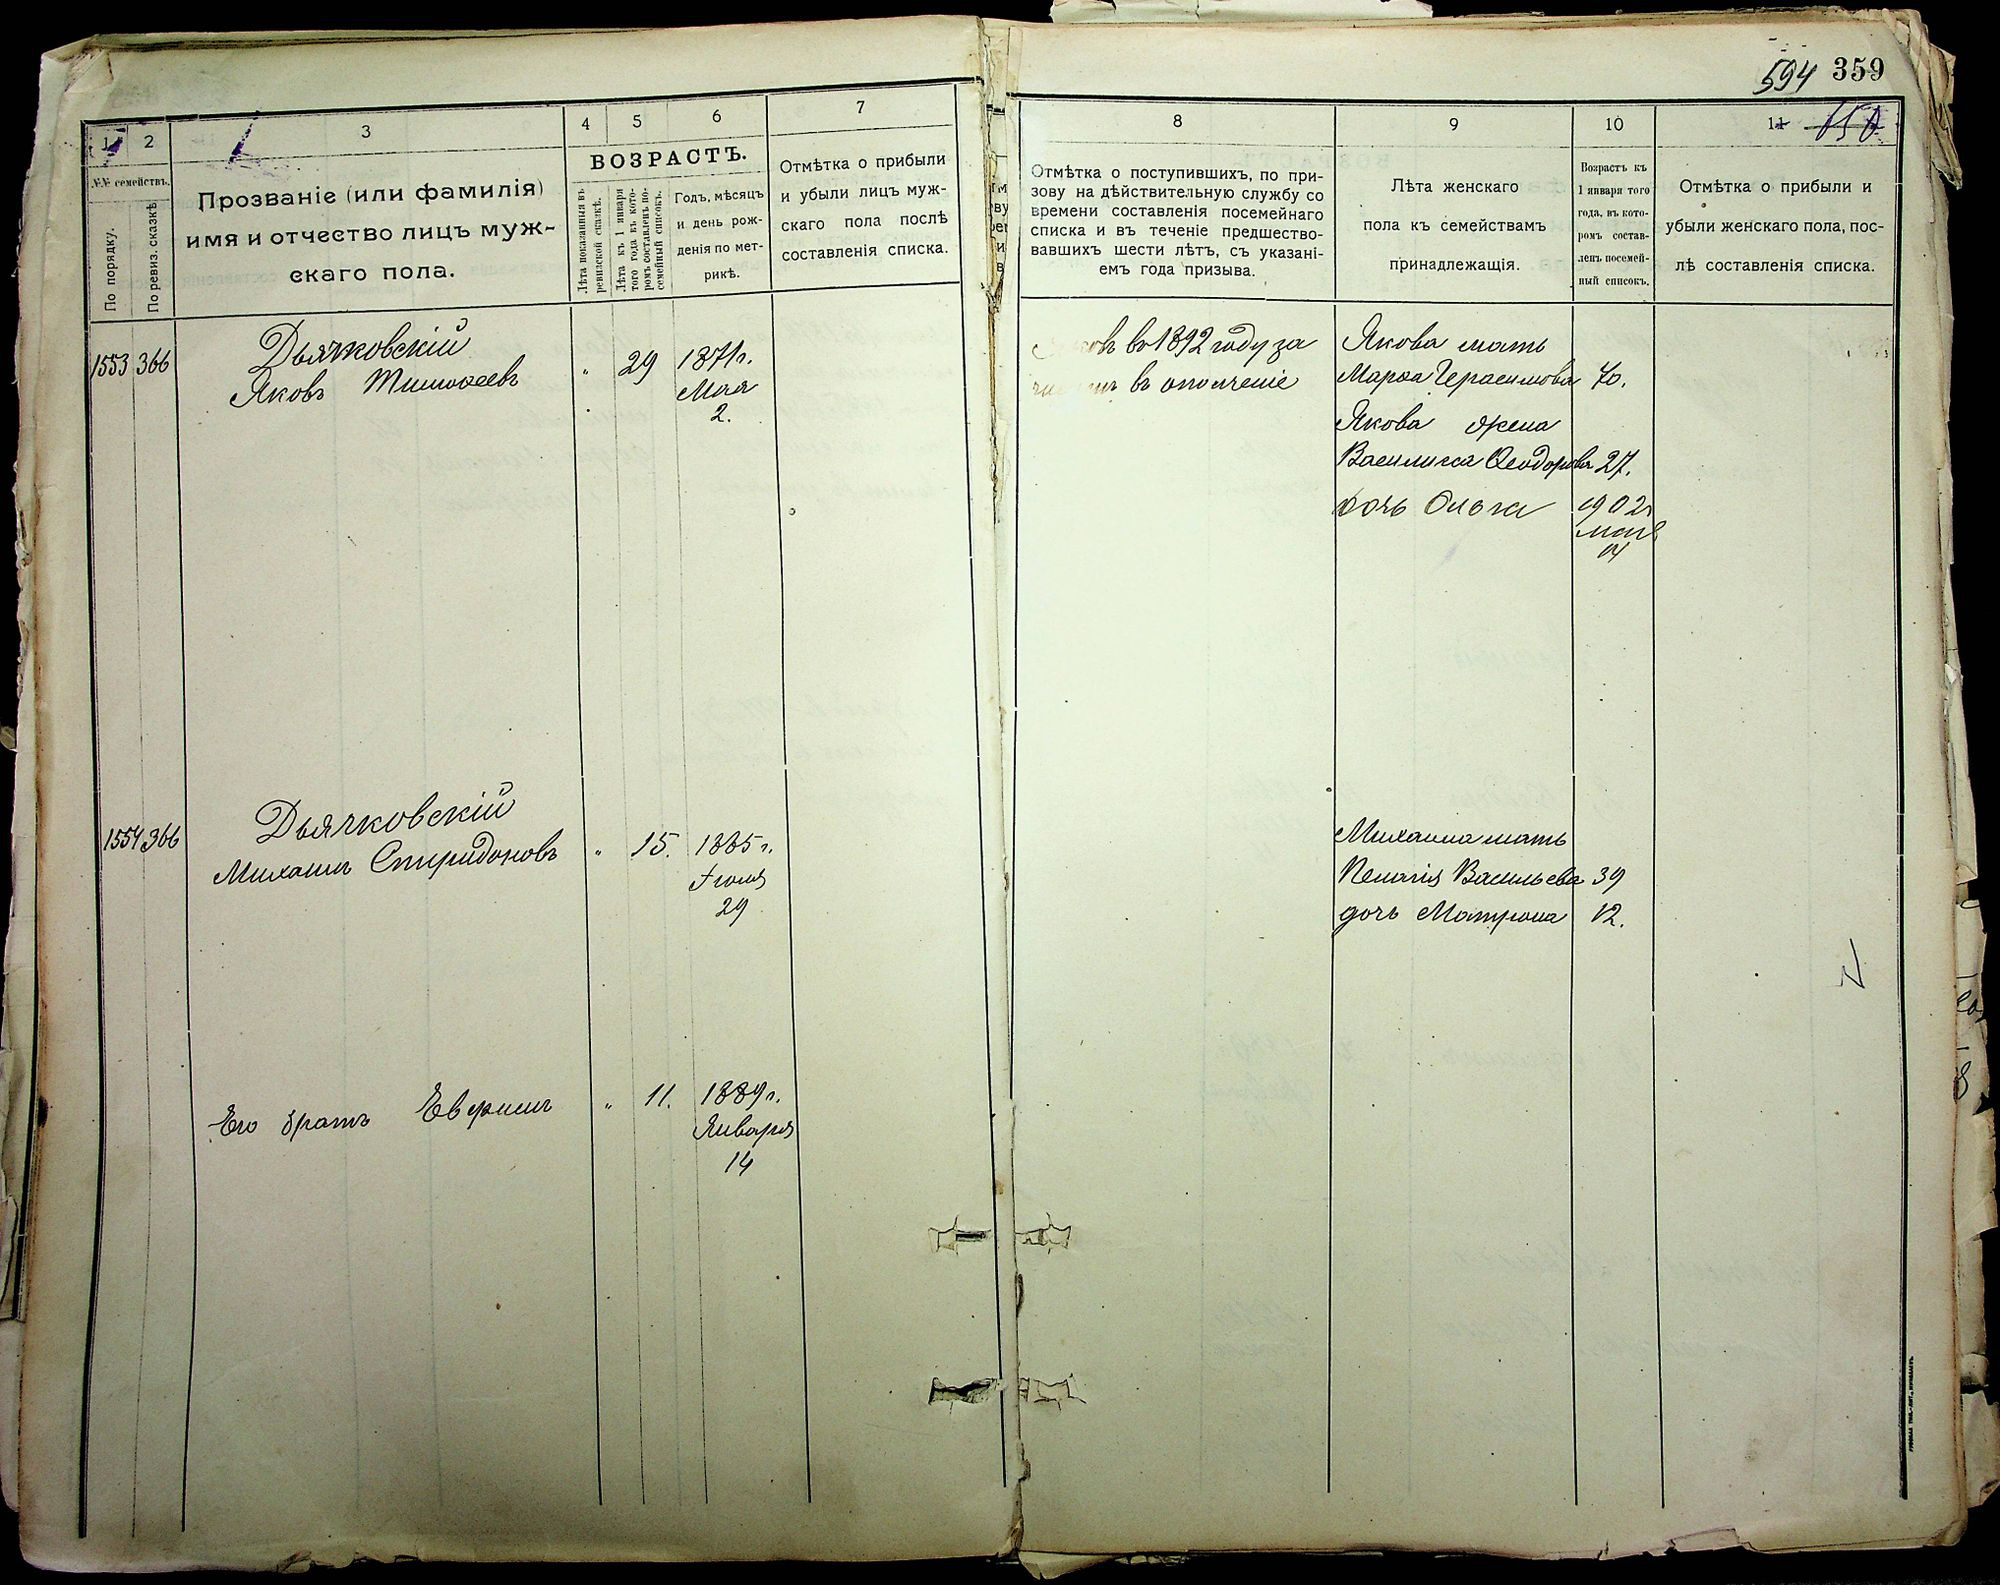 594 359
1 2 3 4 5 6 7
№№ семействъ.
По порядку.
По ревиз. сказкѣ
Прозваніе (или фамилія)
имя и отчество лицъ муж-
скаго пола.
ВОЗРАСТЪ.
Лѣта показанныя въ
ревизской сказкѣ.
Лѣта къ 1 января
того года въ кото-
ромъ составленъ по-
семейный списокъ.
Годъ, мѣсяцъ
и день рож-
денія по мет-
рикѣ.
Отмѣтка о прибыли
и убыли лицъ муж-
скаго пола послѣ
составленія списка.
1553 366
Дьячковскій
Яковъ Тимоѳеевъ
" 29 1871 г.
Мая
2.
1554 366
Дьячковскій
Михаилъ Спиридоновъ
" 15. 1885 г.
Іюля
29
Его братъ
" 11. 1889 г.
Января
14
8 9 10 11
Отмѣтка о поступившихъ, по при-
зову на дѣйствительную службу со
времени составленія посемейнаго
списка и въ теченіе предшество-
вавшихъ шести лѣтъ, съ указані-
емъ года призыва.
Лѣта женскаго
пола къ семействамъ
принадлежащія.
Возрастъ къ
1 января того
года, въ кото-
ромъ состав-
ленъ посемей-
ный списокъ.
Отмѣтка о прибыли и
убыли женскаго пола, пос-
лѣ составленія списка.
въ 1892 году за
въ ополченіе
Якова мать
Марѳа Герасимова 70.
Якова жена
Василисса Ѳеодорова 27.
дочь Ольга 1902
мая
14
Михаила мать
Пелагія Васильева 39
дочь Матрона 12.